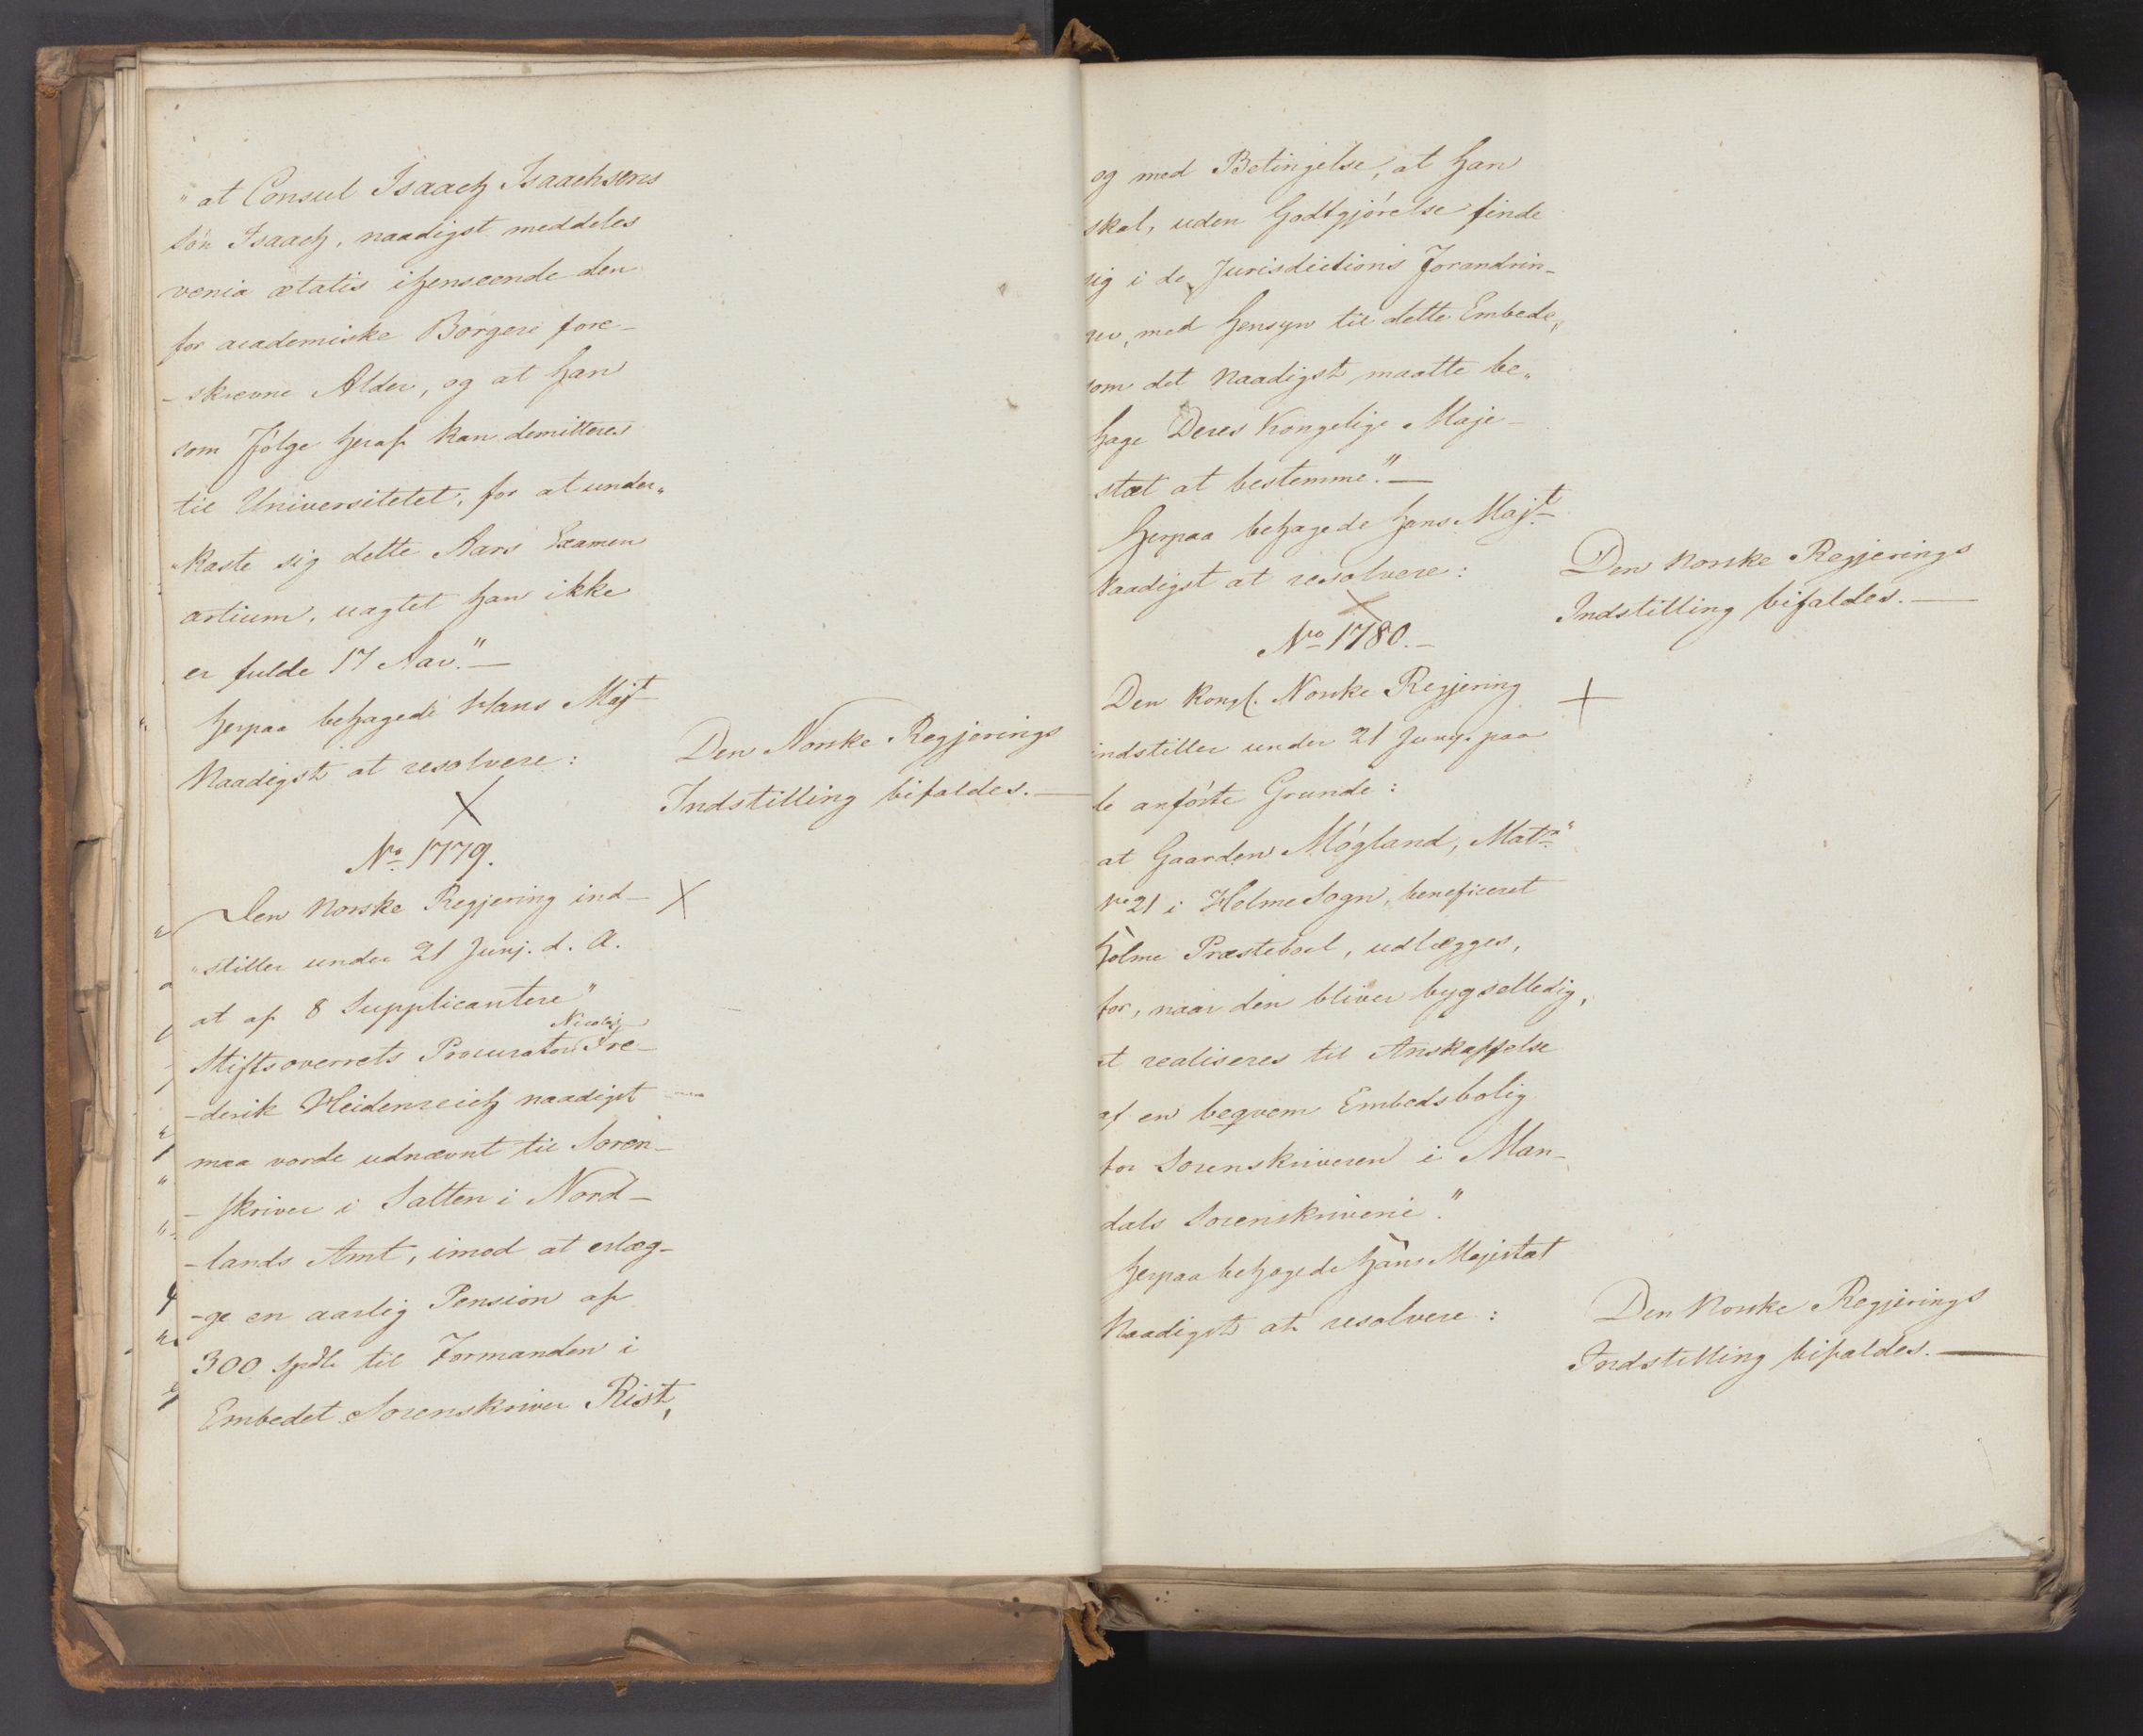 "at Consul Isaach Isaachsens
Sön Isaach, naadigst meddeles
venia ætatis ihenseende den
for academiske Borgere fore-
-skrevne Alder, og at han
som Følge heraf kan demitteres
til Universitetet, for at under„
„kaste sig dette Aars Examen
artium, uagtet han ikke
er fulde 17 Aar."—
Herpaa behagede Hans Majt
Naadigst at resolvere:
Den Norske Regjerings
Indstilling bifaldes.—
No 1779.
Den Norske Regjering ind-
„stiller under 21 Junj. d. A.
at af 8 Supplicantere"
Stiftsoverrets Procurator Nicolaj Fre-
-derik Heidenreich naadigst
maa vorde udnævnt til Soren-
-skriver i Salten i Nord-
-lands Amt, imod at erlæg-
-ge en aarlig Pension af
300 Spdlr til Formanden i
Embedet Sorenskriver Rist,
og med Betingelse, at han
skal, uden Godtgjörelse finde
sig i de Jurisdictions Forandrin-
ger, med Hensyn til dette Embede,
som det Naadigst maatte be„
hage Deres Kongelige Maje-
stæt at bestemme."—
Herpaa behagede Hans Majt
Naadigst at resolvere:
Den Norske Regjerings
Indstilling bifaldes.—
No 1780.—
Den Kongl. Norske Regjering
indstiller under 21 Junj. paa
de anförte Grunde:
at Gaarden Mögland, Matr"
No 21 i Holme Sogn, beneficeret
Holme Præsteboel, udlægges,
for, naar den bliver bygselledig,
at realiseres til Anskaffelse
af en beqvem Embedsbolig
for Sorenskriveren i Man-
dals Sorenskriverie."
Herpaa behagede Hans Majestæt
Naadigst at resolvere:
Den Norske Regjerings
Indstilling bifaldes.—